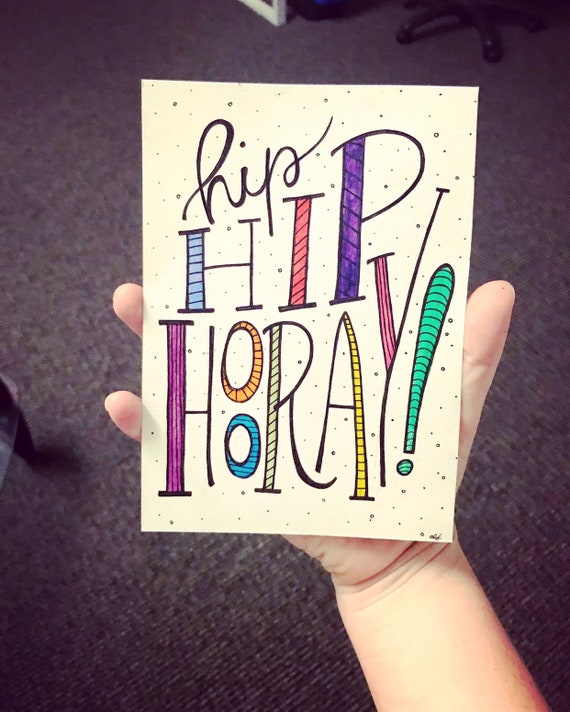 hip
HIP
HOORAY!